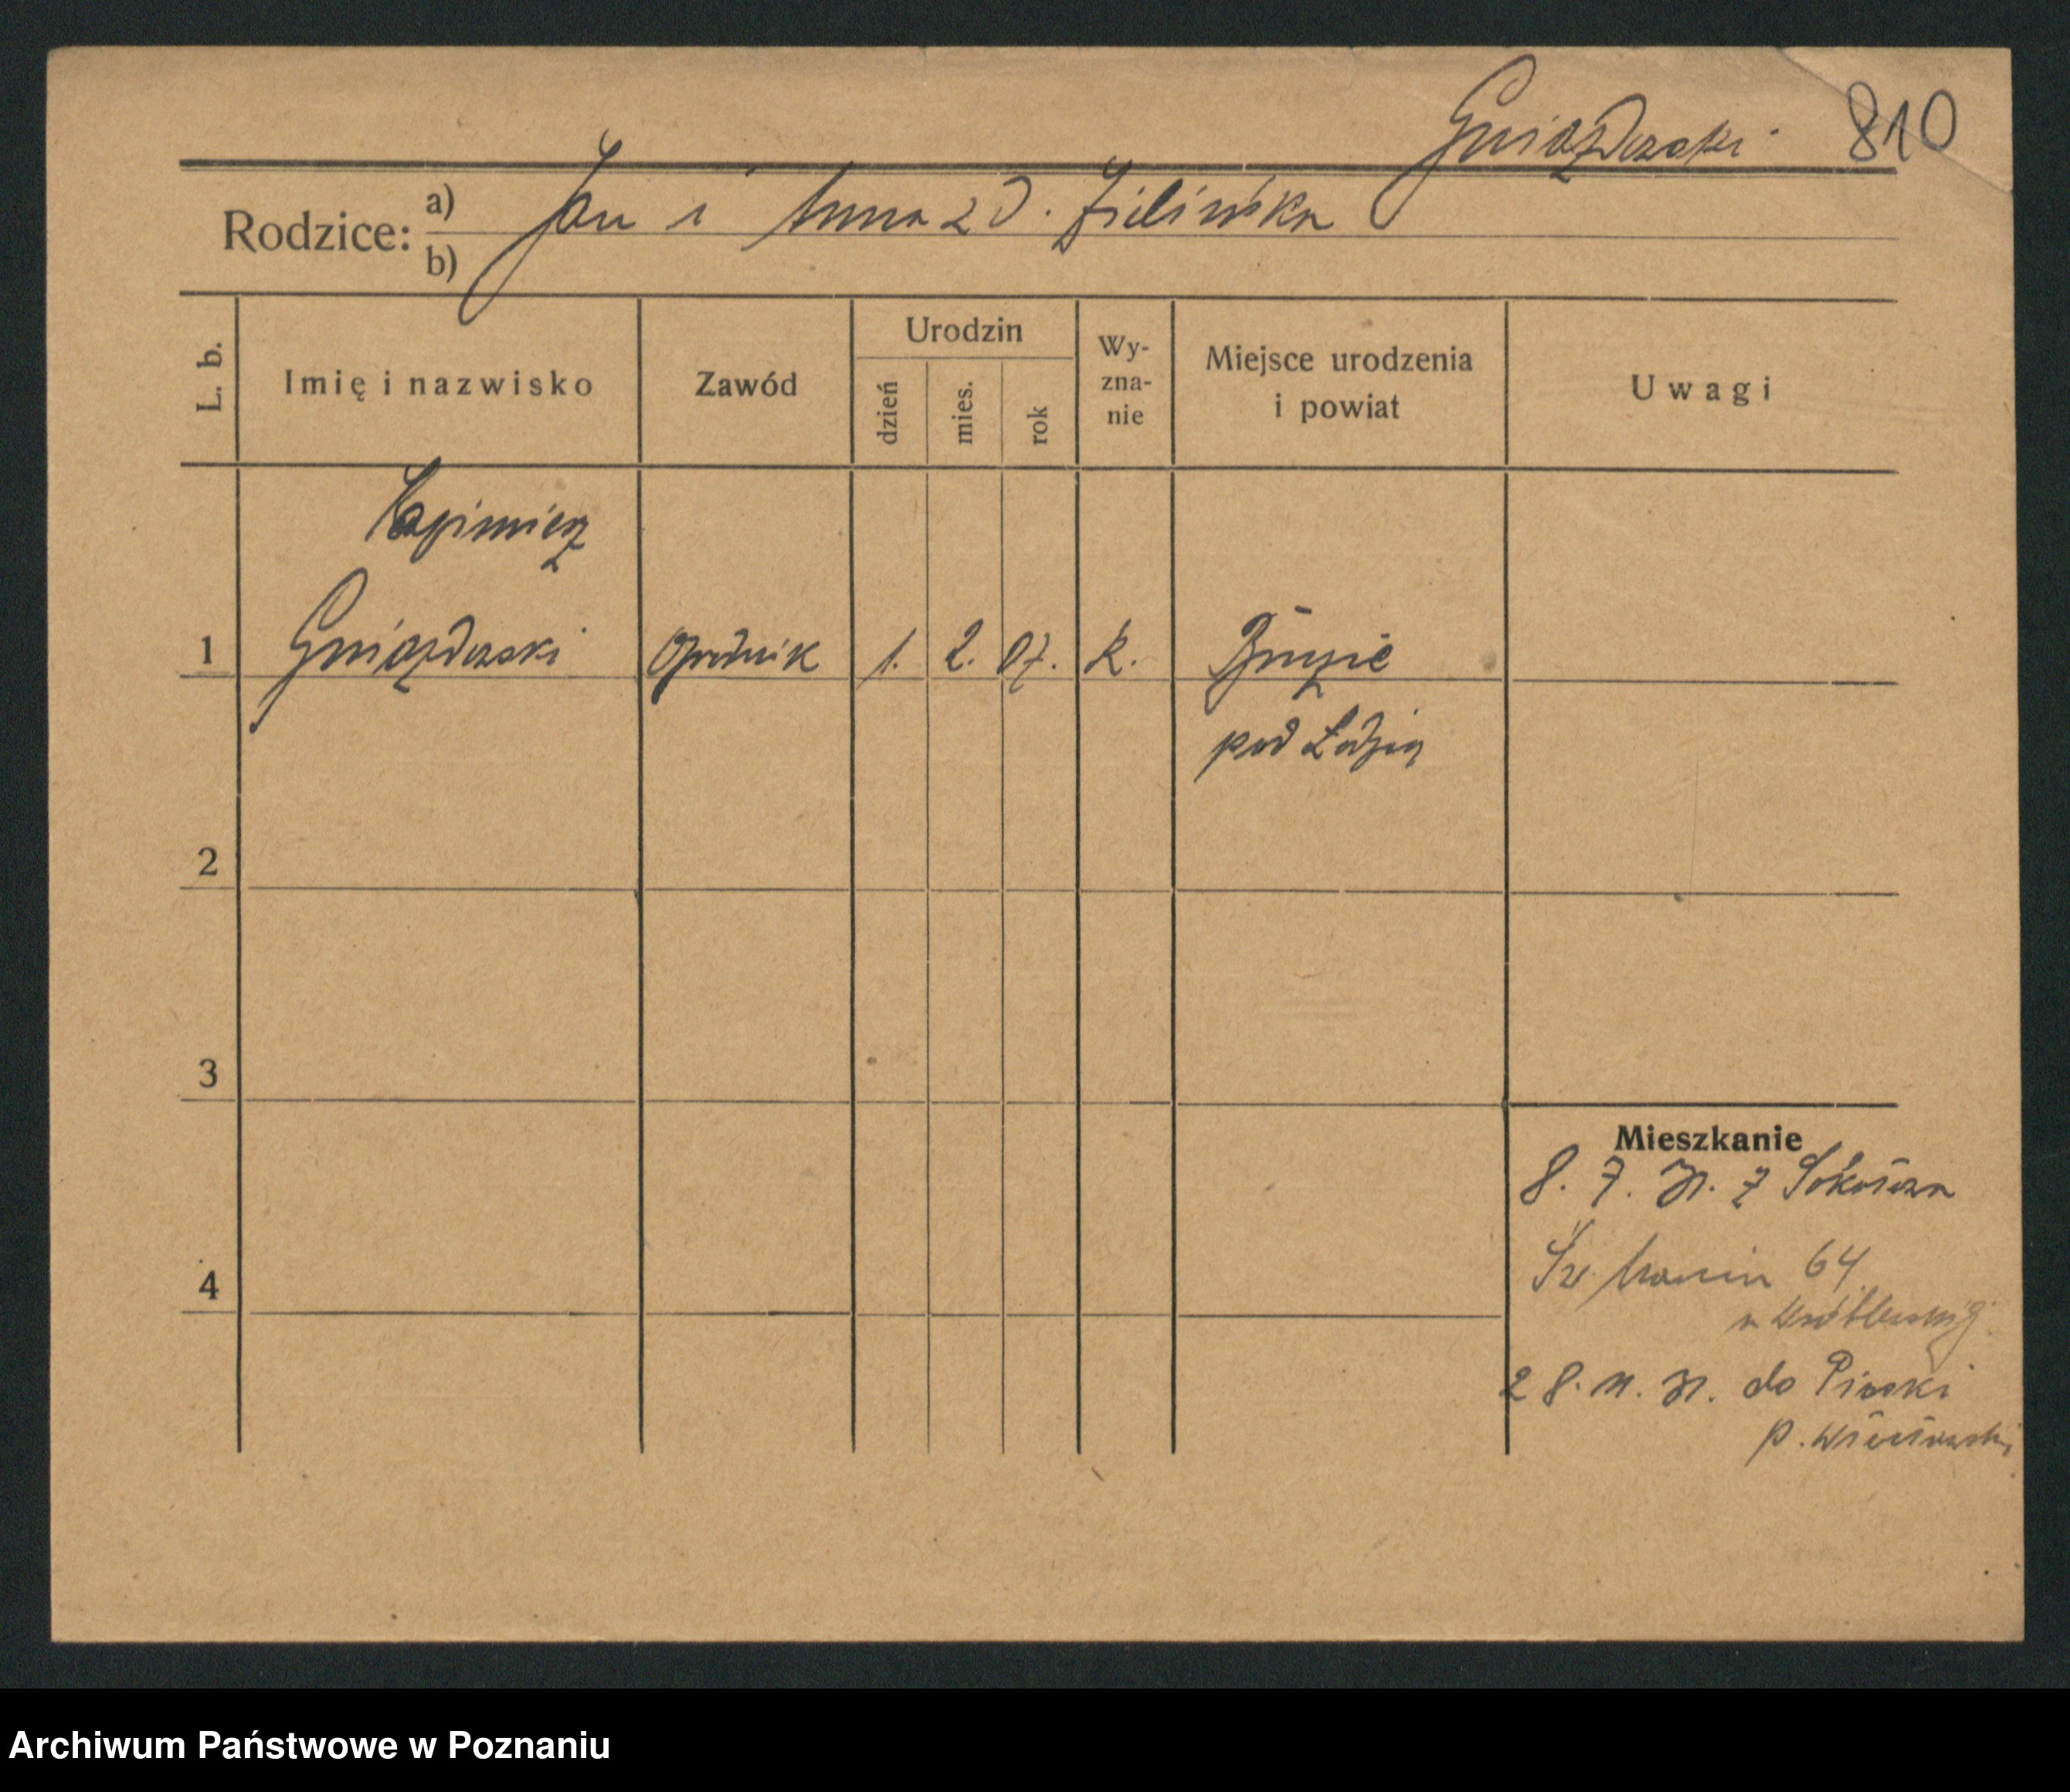 Gniazdowski 810
Rodzice: a) b) Jan i Anna z d. Zielińska
L. b. Imię i nazwisko Zawód Urodzin dzień mies. rok Wy-zna-nie Miejsce urodzenia i powiat Uwagi
Kazimierz
1 Gniazdowski Ogrodnik 1. 2. 07. k.
pod Łodzią
2
3
Mieszkanie
8. 7. 31. z
4
Św. Marcin 64
28. 11. 31. do Piaski
p.
Archiwum Państwowe w Poznaniu